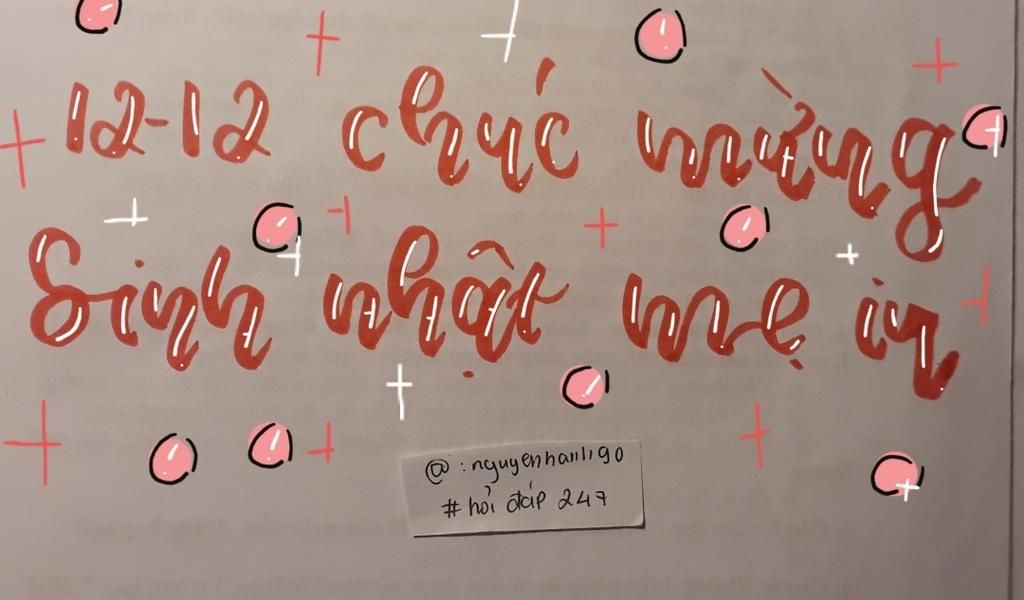 12-12 chúc mừng
Sinh nhật mẹ in
@ : nguyenhanh90
#hỏi đáp 247